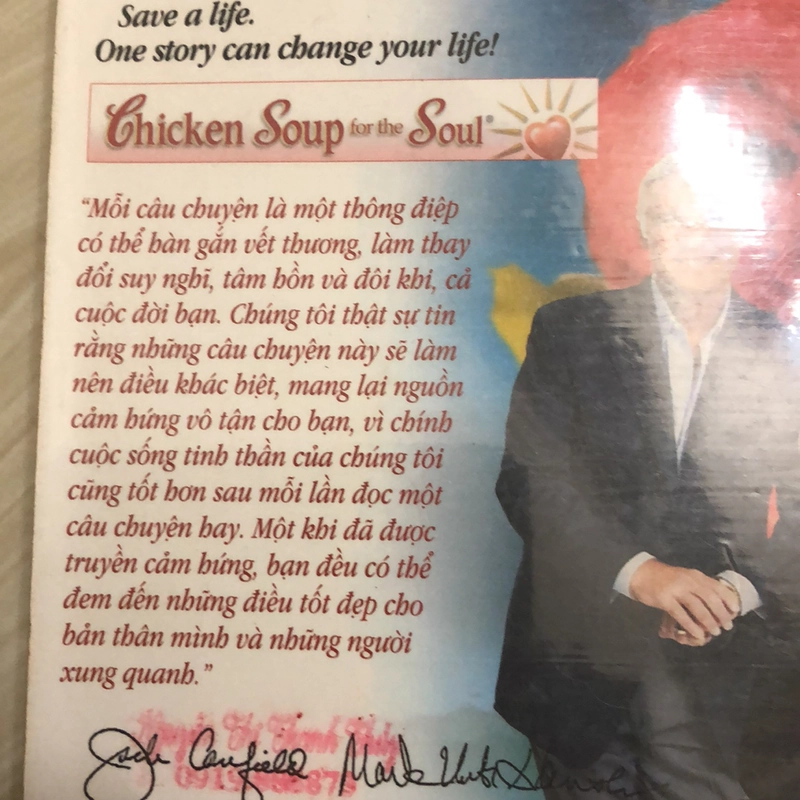 Save a life.
One story can change your life!
Chicken Soup for the Soul®
“Mỗi câu chuyện là một thông điệp
có thể hàn gắn vết thương, làm thay
đổi suy nghĩ, tâm hồn và đôi khi, cả
cuộc đời bạn. Chúng tôi thật sự tin
rằng những câu chuyện này sẽ làm
nên điều khác biệt, mang lại nguồn
cảm hứng vô tận cho bạn, vì chính
cuộc sống tinh thần của chúng tôi
cũng tốt hơn sau mỗi lần đọc một
câu chuyện hay. Một khi đã được
truyền cảm hứng, bạn đều có thể
đem đến những điều tốt đẹp cho
bản thân mình và những người
xung quanh.”
Jack Canfield Mark